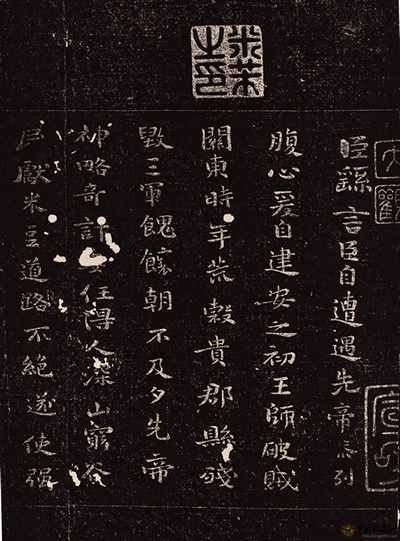 米芾之印
大觀
臣繇言臣自遭遇先帝忝列
腹心爰自建安之初王師破賊
關東時年荒榖貴郡縣殘
毀三軍餽饟朝不及夕先帝
神略奇計委任得人深山窮谷
民獻米豆道路不絕遂使强